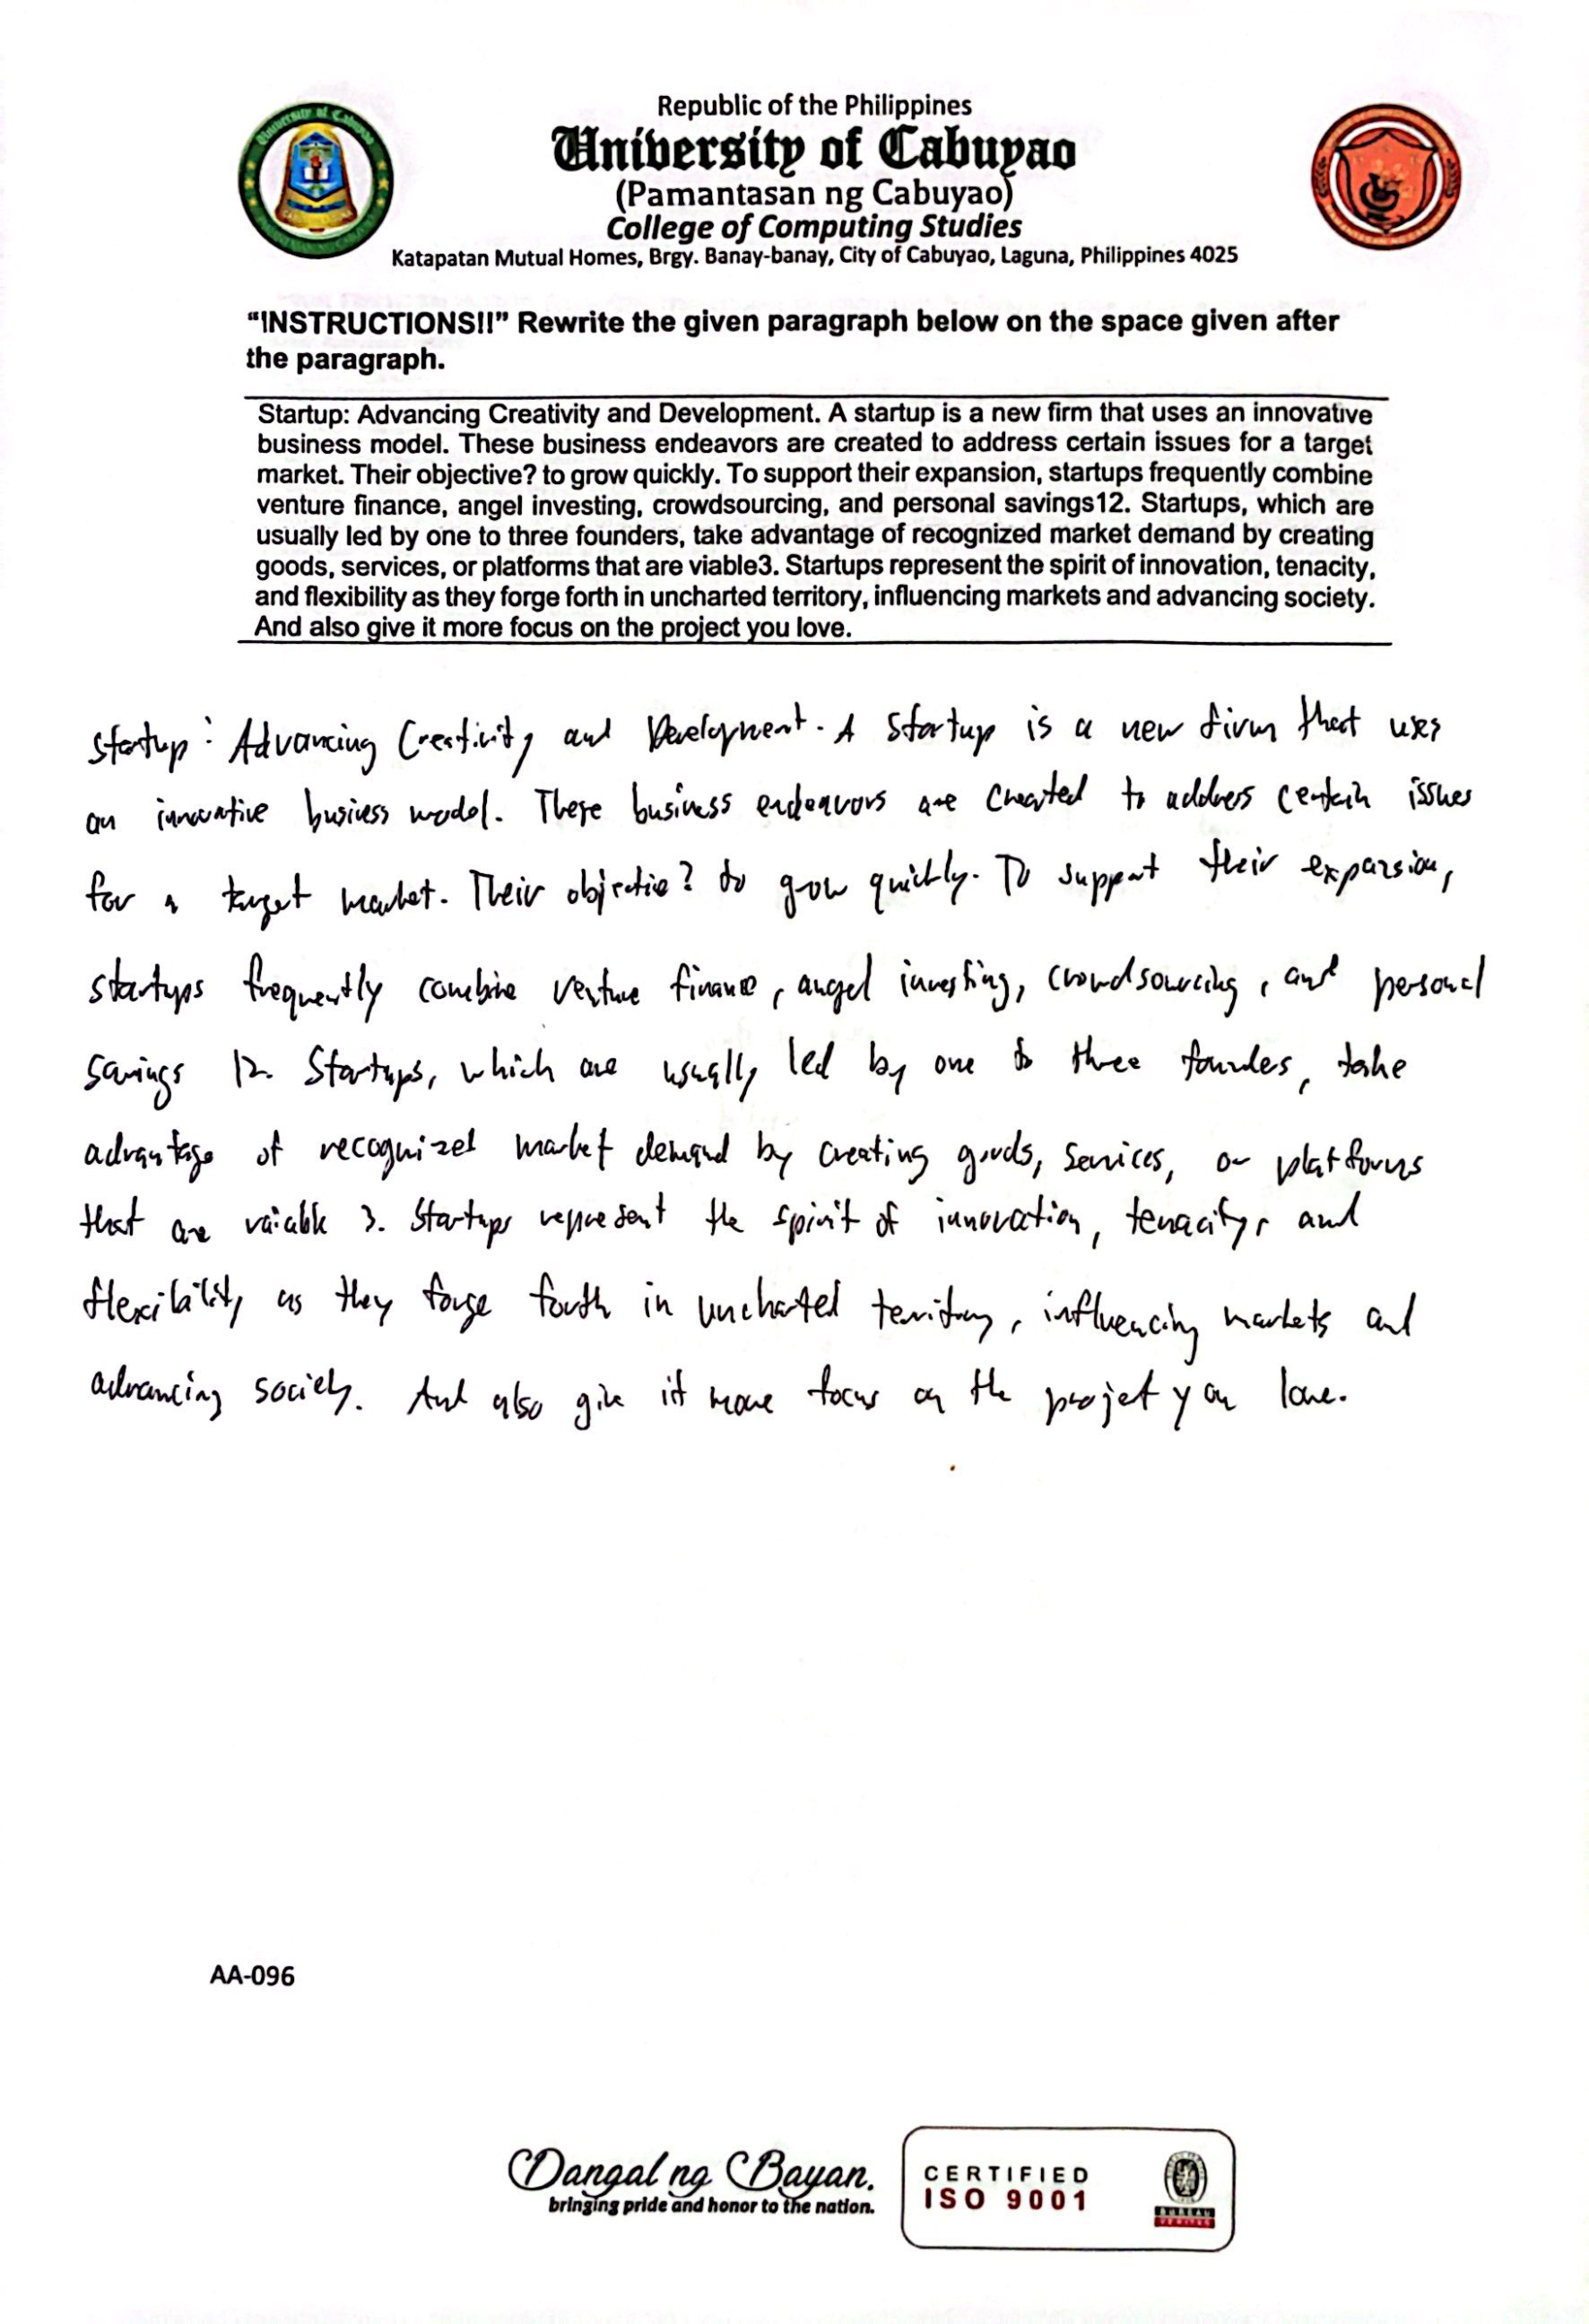 Republic of the Philippines
University of Cabuyao
(Pamantasan ng Cabuyao)
College of Computing Studies
Katapatan Mutual Homes, Brgy. Banay-banay, City of Cabuyao, Laguna, Philippines 4025
“INSTRUCTIONS!!” Rewrite the given paragraph below on the space given after
the paragraph.
Startup: Advancing Creativity and Development. A startup is a new firm that uses an innovative
business model. These business endeavors are created to address certain issues for a target
market. Their objective? to grow quickly. To support their expansion, startups frequently combine
venture finance, angel investing, crowdsourcing, and personal savings12. Startups, which are
usually led by one to three founders, take advantage of recognized market demand by creating
goods, services, or platforms that are viable3. Startups represent the spirit of innovation, tenacity,
and flexibility as they forge forth in uncharted territory, influencing markets and advancing society.
And also give it more focus on the project you love.
startup: Advancing Creativity and Development. A startup is a new firm that uses
an innovative business model. These business endeavors are created to address certain issues
for a target market. Their objective? to grow quickly. To support their expansion,
startups frequently combine venture finance, angel investing, crowdsourcing, and personal
savings 12. Startups, which are usually led by one to three founders, take
advantage of recognized market demand by creating goods, services, or platforms
that are vaiable 3. Startups represent the spirit of innovation, tenacity, and
flexibility as they forge forth in uncharted territory, influencing markets and
advancing society. And also give it more focus on the projet you love.
AA-096
Dangal ng Bayan.
bringing pride and honor to the nation.
CERTIFIED
ISO 9001
BUREAU
VERITAS